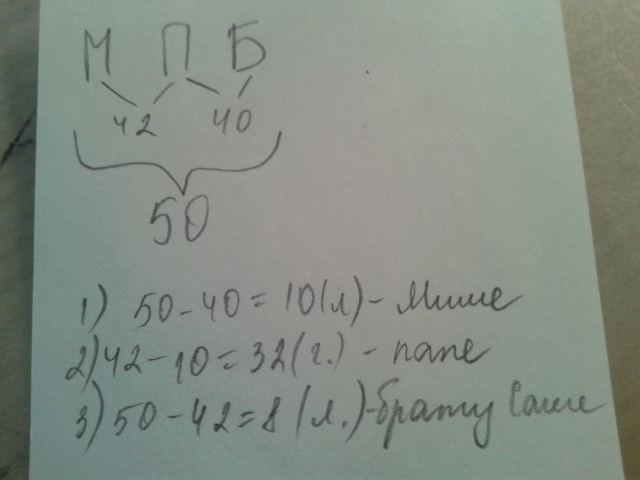 М П Б
42 40
50
1) 50-40=10(л)-Мише
2) 42-10=32(г.)-папе
3) 50-42=8(л.)-брату Саше